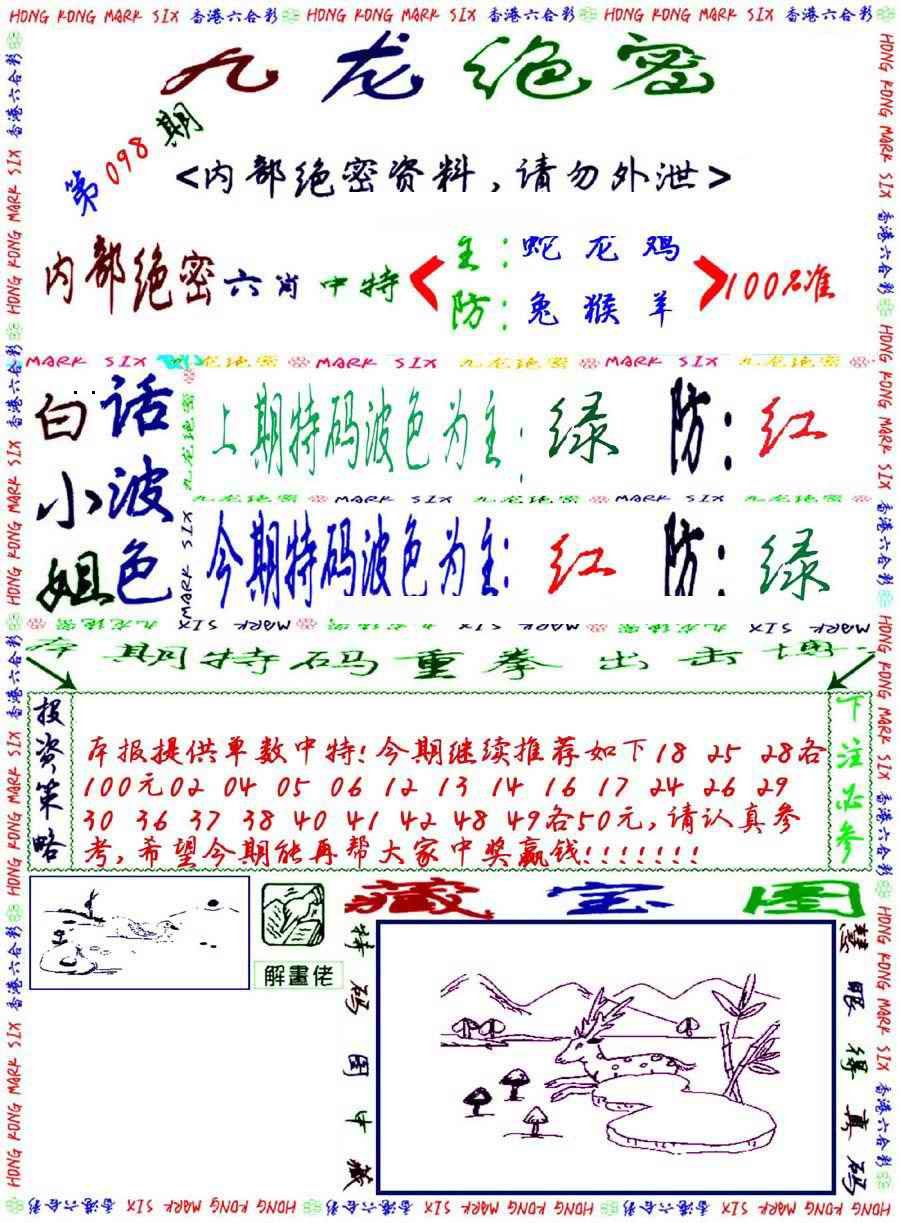 HONG KONG MARK SIX 香港六合彩 HONG KONG MARK SIX 香港六合彩 HONG KONG MARK SIX 香港六合彩
九龙绝密
第098期
<内部绝密资料,请勿外泄>
内部绝密六肖中特
主:蛇龙鸡
防:兔猴羊
100%准
MARK SIX 九龙绝密 MARK SIX 九龙绝密 MARK SIX 九龙绝密
白话小波姐色
上期特码波色为主:绿 防:红
九龙绝密 MARK SIX 九龙绝密 MARK SIX 九龙绝密
今期特码波色为主:红 防:绿
本期特码重拳出击
投资策略
本报提供单数中特!今期继续推荐如下18 25 28各
100元02 04 05 06 12 13 14 16 17 24 26 29
30 36 37 38 40 41 42 48 49各50元,请认真参
考,希望今期能再帮大家中奖赢钱!!!!!!!
下注必参
解畫佬
藏宝图
特码图中藏
慧眼得真码
HONG KONG MARK SIX 香港六合彩 HONG KONG MARK SIX 香港六合彩 HONG KONG MARK SIX 香港六合彩